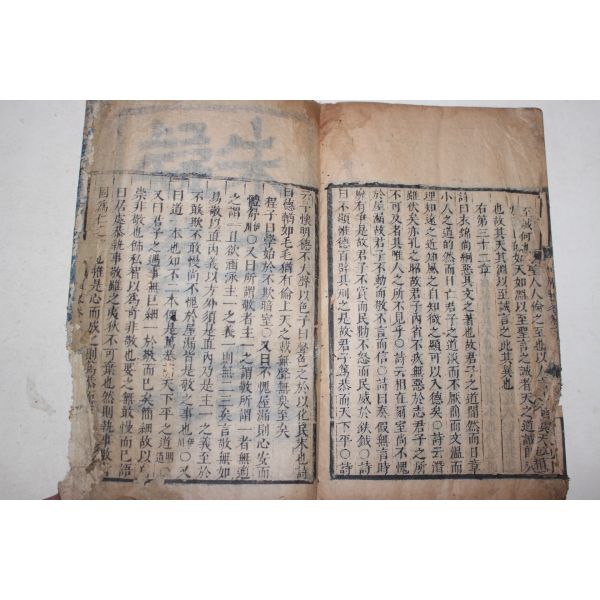 至誠何至人倫之至也以人
如天如淵以至聖言之誠者天之道誠
也故其天其淵以至誠言之此其異也
右第三十二章
詩曰衣錦尚絅惡其文之著也故君子之道闇然而日章
小人之道的然而日亡君子之道淡而不厭簡而文溫而
理知遠之近知風之自知微之顯可以入德矣○詩云潛
雖伏矣亦孔之昭故君子內省不疚無惡於志君子之所
不可及者其唯人之所不見乎○詩云相在爾室尚不愧
于屋漏故君子不動而敬不言而信○詩曰奏假無言時
靡有爭是故君子不賞而民勸不怒而民威於鈇鉞○詩
曰不顯惟德百辟其刑之是故君子篤恭而天下平○詩
云予懷明德不大聲以色子曰聲色之於以化民末也詩
曰德輶如毛毛猶有倫上天之載無聲無臭至矣
程子曰學始於不欺暗室○又曰不愧屋漏則心安而
體舒伊川○又曰所謂敬者主一之謂敬所謂一者無適
之謂一且欲涵泳主一之義一則無二三矣言敬無如
易敬以直內義以方外須是直內乃是主一之義至於
不敢欺不敢慢尚不愧於屋漏皆是敬之事也伊川○又
曰道一本也知不二本便是篤恭而天下平之道明道
又曰君子之遇事無巨細一於敬而已矣簡細故以自
崇非敬也飾私智以為奇非敬也要之無敢慢而已語
曰居處恭執事敬雖之夷狄不可棄也然則執事敬
固為仁之也推是心而成之則篤恭